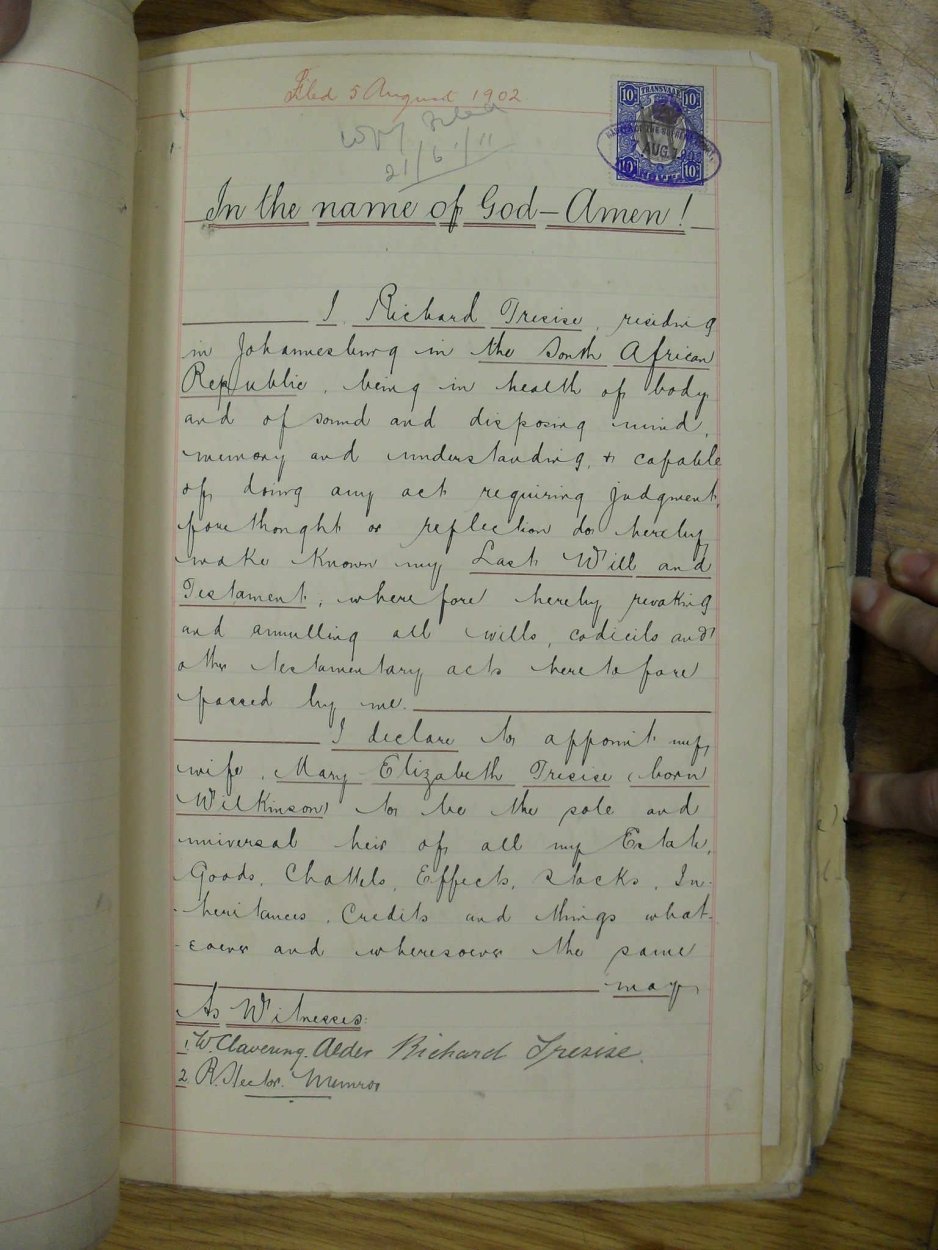 Filed 5 August 1902
Copy Filed
21/6/11
10/- TRANSVAAL 10/-
7 AUG 1902
10/- 10/-
In the name of God – Amen!
I, Richard Tresise, residing
in Johannesburg in the South African
Republic, being in health of body
and of sound and disposing mind,
memory and understanding, & capable
of doing any act requiring judgment,
forethought or reflection do hereby
make known my Last Will and
Testament, wherefore hereby revoking
and annulling all wills, codicils and
other testamentary acts heretofore
passed by me.
I declare to appoint my
wife, Mary Elizabeth Tresise (born
Wilkinson) to be the sole and
universal heir of all my Estate,
Goods, Chattels, Effects, Stocks, In-
-heritances, Credits and things what-
-soever and wheresoever the same
may
As Witnesses:
1. W. Clavering Alder Richard Tresise
2. R. Hector Munro